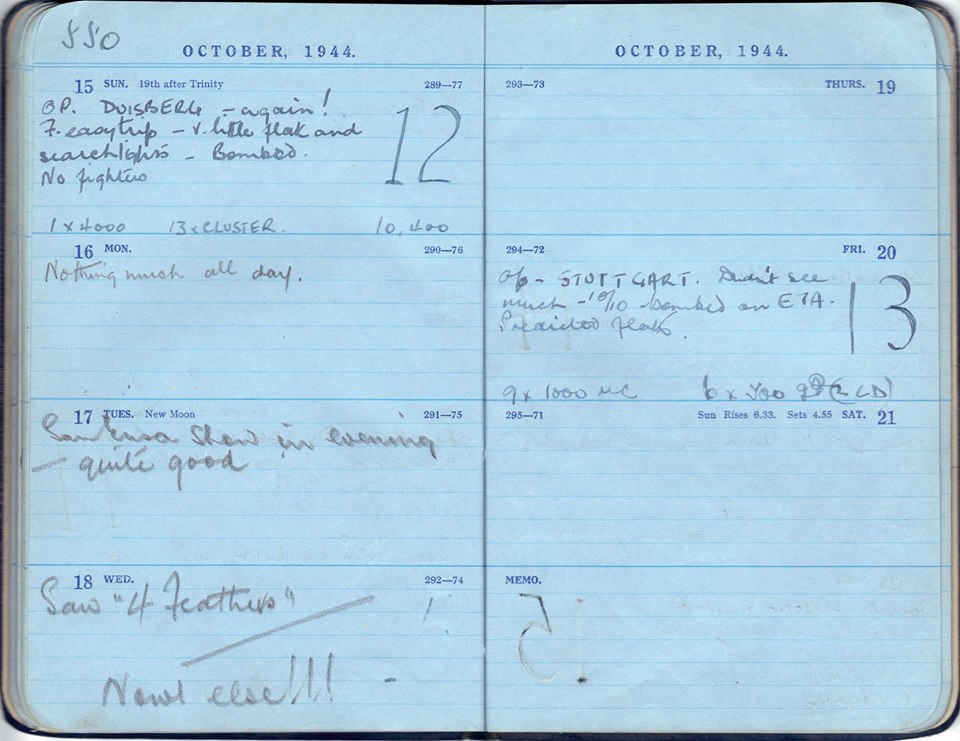 550
OCTOBER, 1944.
15 SUN. 19th after Trinity 289—77
OP. DUISBERG – again!
7. easy trip – v. little flak and
searchlights – Bombed.
No fighters
12
1 x 4000 13 x CLUSTER. 10,400
16 MON. 290—76
Nothing much all day.
17 TUES. New Moon 291—75
Saw Ensa Show in evening
— quite good
18 WED. 292—74
Saw "4 Feathers"
Nowt else!!!
OCTOBER, 1944.
293—73 THURS. 19
294—72 FRI. 20
Op – STUTTGART. Didn't see
much – 10/10 – bombed on ETA.
Predicted flak.
13
9 x 1000 MC 6 x 500
295—71 Sun Rises 6.33. Sets 4.55 SAT. 21
MEMO.